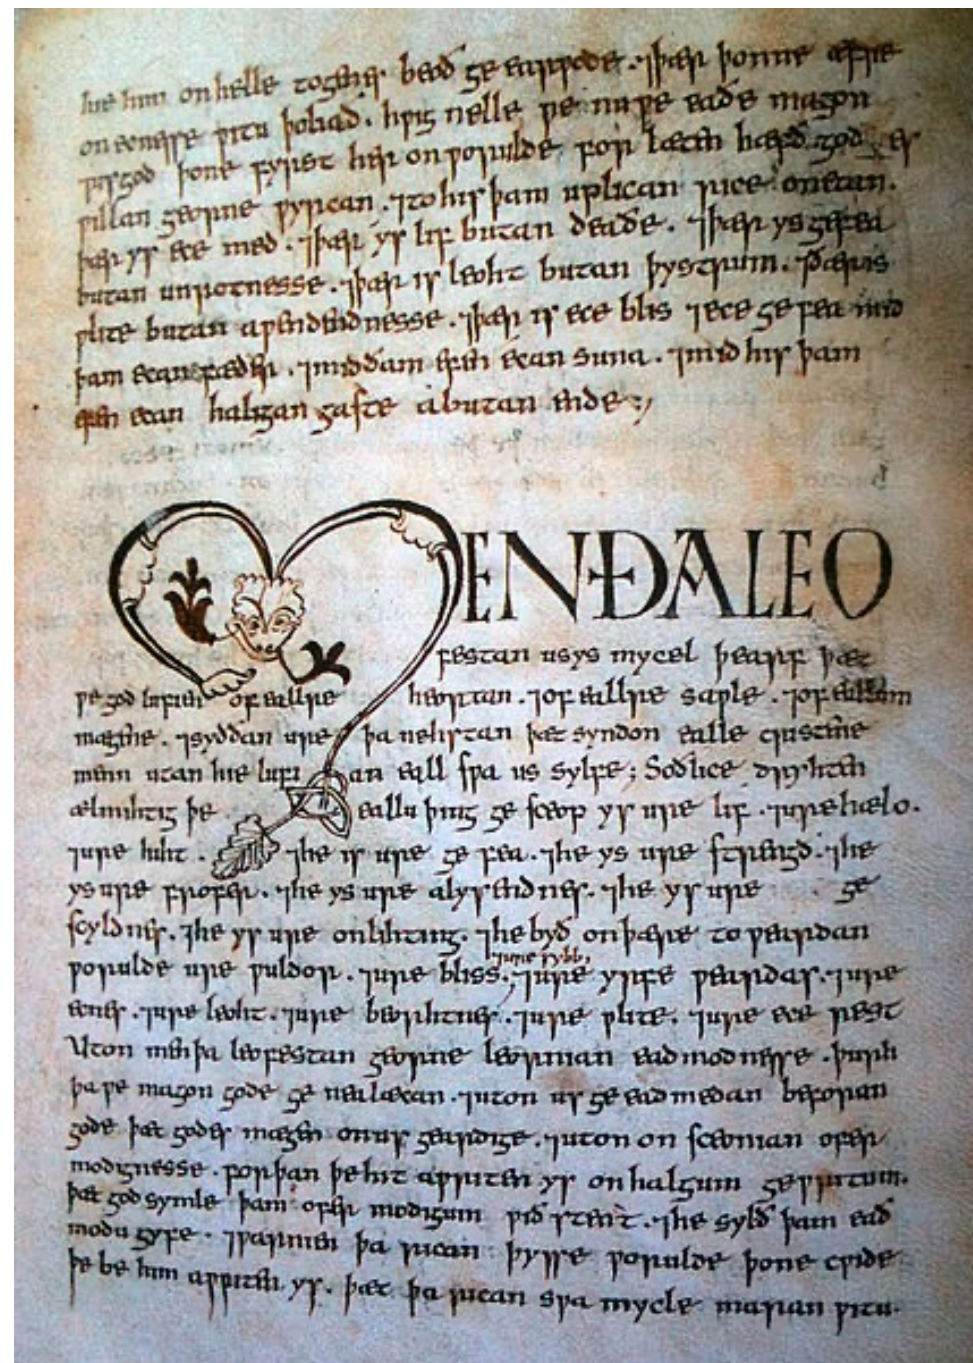 hie him on helle togenes beoð ge earwode · ⁊ þær þonne æfre
on ecnesse witu þoliað · hwig nelle we nu þe eaðe magon
þone fyrst her on worulde for læten hæfð god
willan georne wyrcan · ⁊ to his þam uplican rice onetan ·
þær ys ece med · ⁊ þær ys lif butan deaðe · ⁊ þær ys gefea
butan unrotnesse · ⁊ þær is leoht butan þystrum · ⁊ þær is
wlite butan awendendnesse · ⁊ þær is ece blis ⁊ ece ge fea mid
þam ecan fæder · ⁊ mid ðam efen ecan suna · ⁊ mid his þam
efen ecan haligan gaste a butan ende :,
MEN ÐA LEO
festan us ys mycel þearf þæt
we god lufien of ealre heortan · ⁊ of ealre sawle · ⁊ of eallum
mægene · ⁊ syððan ure þa nehstan þæt syndon ealle cristene
menn utan hie lufi an eall swa us sylfe ; Soðlice dryhten
ælmihtig þe ealle þing ge sceop ys ure lif · ⁊ ure hælo ·
⁊ ure hiht · ⁊ he is ure ge fea · ⁊ he ys ure strengð · ⁊ he
ys ure frofer · ⁊ he ys ure alysendnes · ⁊ he ys ure ge
scyldnes · ⁊ he ys ure onlihting · ⁊ he byð on þære to weardan
⁊ ure sybb,
worulde ure wuldor · ⁊ ure bliss · ⁊ ure yrfe weardas · ⁊ ure
ecnes · ⁊ ure leoht · ⁊ ure beorhtnes · ⁊ ure wlite · ⁊ ure ece rest
Uton men þa leofestan georne leornian eadmodnesse · þurh
þa we magon gode ge nealæcan · ⁊ uton us ge eadmedan beforan
gode þæt godes mægen on us geardige · ⁊ uton on sceonian ofer
modignesse · forþan þe hit awriten ys on halgum gewritum ·
þæt god symle þam ofer modigum wið stent · ⁊ he sylð þam ead
modu gyfe · ⁊ warnien þa rican þysse worulde þone cwide
þe be him awriten ys · þæt þa rican swa mycle maran witu ·